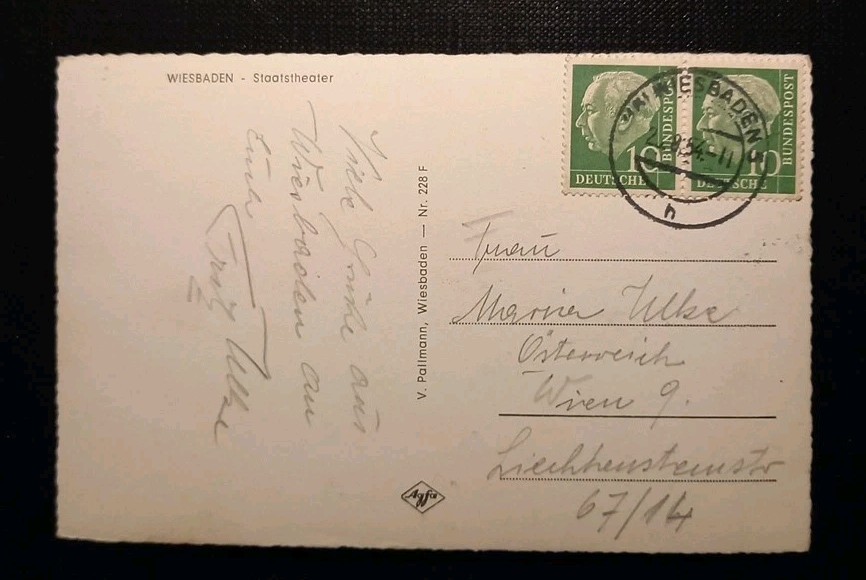 WIESBADEN - Staatstheater
Viele Grüße aus
Wiesbaden an
Euch
Fritz Ulke
V. Pallmann, Wiesbaden — Nr. 228 F
Agfa
10
DEUTSCHE
BUNDESPOST
10
DEUTSCHE
BUNDESPOST
WIESBADEN
54.-11
h
Frau
Ulke
Österreich
Wien 9.
Liechtensteinstr
67/14